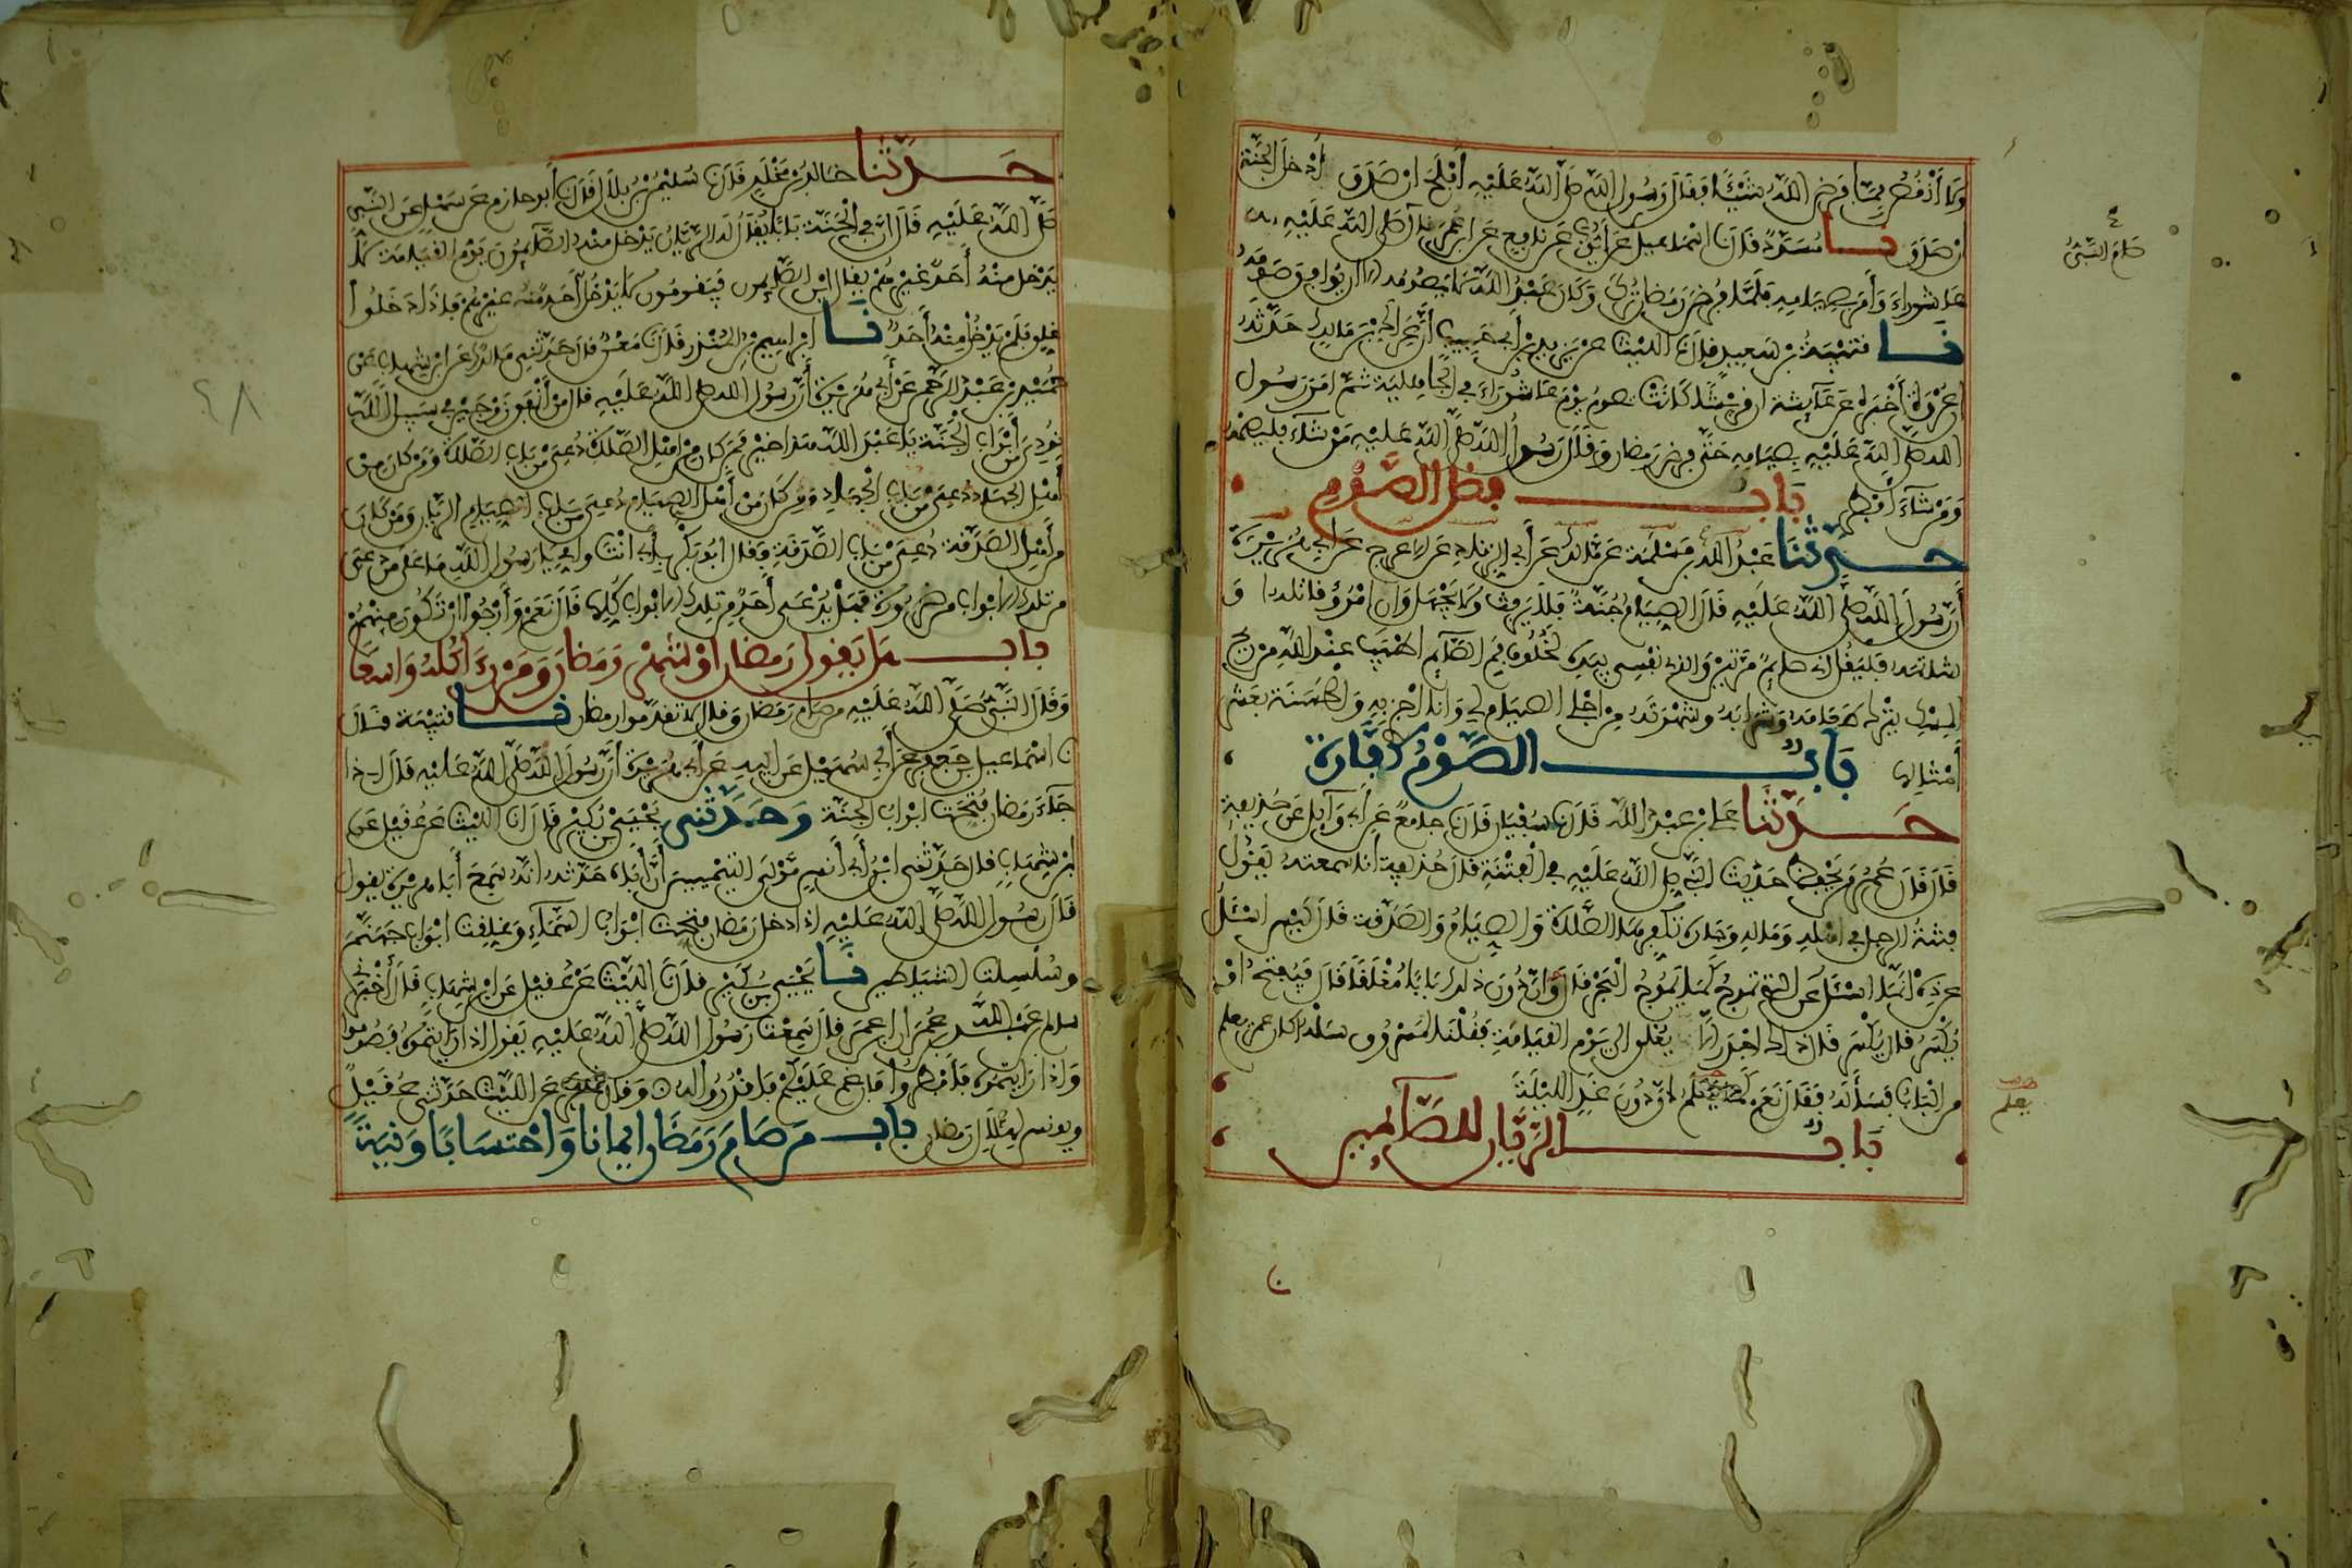 ولا أنقص مما فرض الله شيئا فقال رسول الله صلى الله عليه أفلح ان صدق أدخل الجنة
ان صدق نا مسدد قال نا اسماعيل عن أيوب عن نافع عن ابن عمر قال صام النبي صلى الله عليه
عاشوراء وأمر بصيامه فلما فرض رمضان ترك وكان عبد الله لا يصومه الا ان يوافق صومه
نا قتيبة بن سعيد قال نا الليث عن يزيد بن أبي حبيب أن عراك بن مالك حدثه
ان عروة أخبره عن عائشة ان قريشا كانت تصوم يوم عاشوراء في الجاهلية ثم امر رسول
الله صلى الله عليه بصيامه حتى فرض رمضان وقال رسول الله صلى الله عليه من شاء فليصمه
ومن شاء أفطر باب فضل الصوم
حدثنا عبد الله بن مسلمة عن مالك عن أبي الزناد عن الاعرج عن ابي هريرة
أن رسول الله صلى الله عليه قال الصيام جنة فلا يرفث ولا يجهل وان امرؤ قاتله او
شاتمه فليقل اني صايم مرتين والذي نفسي بيده لخلوف فم الصايم اطيب عند الله من ريح
المسك يترك طعامه وشرابه وشهوته من اجلي الصيام لي وانا اجزي به والحسنة بعشر
أمثالها باب الصوم كفارة
حدثنا علي بن عبد الله قال نا سفيان قال نا جامع عن أبي وآيل عن حذيفة
قال قال عمر من يحفظ حديث النبي صلى الله عليه في الفتنة قال حذيفة أنا سمعته يقول
فتنة الرجل في اهله وماله وجاره تكفرها الصلاة والصيام والصدقة قال ليس اسئل
عن ذه انما اسئل عن التي تموج كما يموج البحر قال وان دون ذلك بابا مغلقا قال فيفتح او
يكسر قال يكسر قال ذاك اجدر الا يغلق الى يوم القيامة فقلنا لمسروق سله اكان عمر يعلم
من الباب فسأله فقال نعم كما يعلم ان دون غد الليلة
باب الريان للصآيمين
صام النبي
يعلم
حدثنا خالد بن مخلد قال نا سليمن بن بلال قال نا أبو حازم عن سهل عن النبي
صلى الله عليه قال ان في الجنة بابا يقال له الريان يدخل منه الصآيمون يوم القيامة لا
يدخل منه أحد غيرهم يقال اين الصايمون فيقومون لا يدخل أحد منه غيرهم فاذا دخلوا
غلق فلم يدخل منه أحد نا ابراهيم بن المنذر قال نا معن قال حدثني مالك عن ابن شهاب عن
حميد بن عبد الرحمن عن أبي هريرة أن رسول الله صلى الله عليه قال من أنفق زوجين في سبيل الله
نودي من أبواب الجنة يا عبد الله هذا خير فمن كان من اهل الصلاة دعي من باب الصلاة ومن كان من
أهل الجهاد دعي من باب الجهاد ومن كان من أهل الصيام دعي من باب الصيام الريان ومن كان
من أهل الصدقة دعي من باب الصدقة فقال ابو بكر بأبي انت وامي يا رسول الله ما على من دعي
من تلك الابواب من ضرورة فهل يدعى أحد من تلك الابواب كلها قال نعم وأرجوا ان تكون منهم
باب هل يقول رمضان او شهر رمضان ومن رءا كله واسعا
وقال النبي صلى الله عليه من صام رمضان وقال لا تقدموا رمضان نا قتيبة قال
نا اسماعيل بن جعفر عن أبي سهيل عن ابيه عن أبي هريرة أن رسول الله صلى الله عليه قال اذا
جاء رمضان فتحت ابواب الجنة وحدثني يحيى بن بكير قال نا الليث عن عقيل عن
ابن شهاب قال حدثني ابن أبي أنس مولى التيميين أن أباه حدثه انه سمع أبا هريرة يقول
قال رسول الله صلى الله عليه اذا دخل رمضان فتحت ابواب السماء وغلقت ابواب جهنم
وسلسلت الشياطين نا يحيى بن بكير قال نا الليث عن عقيل عن ابن شهاب قال أخبرني
سالم بن عبد الله بن عمر أن ابن عمر قال سمعت رسول الله صلى الله عليه يقول اذا رايتموه فصوموا
واذا رايتموه فافطروا فان غم عليكم فاقدروا له وقال غيره عن الليث حدثني عقيل
ويونس لهلال رمضان باب من صام رمضان ايمانا واحتسابا ونية